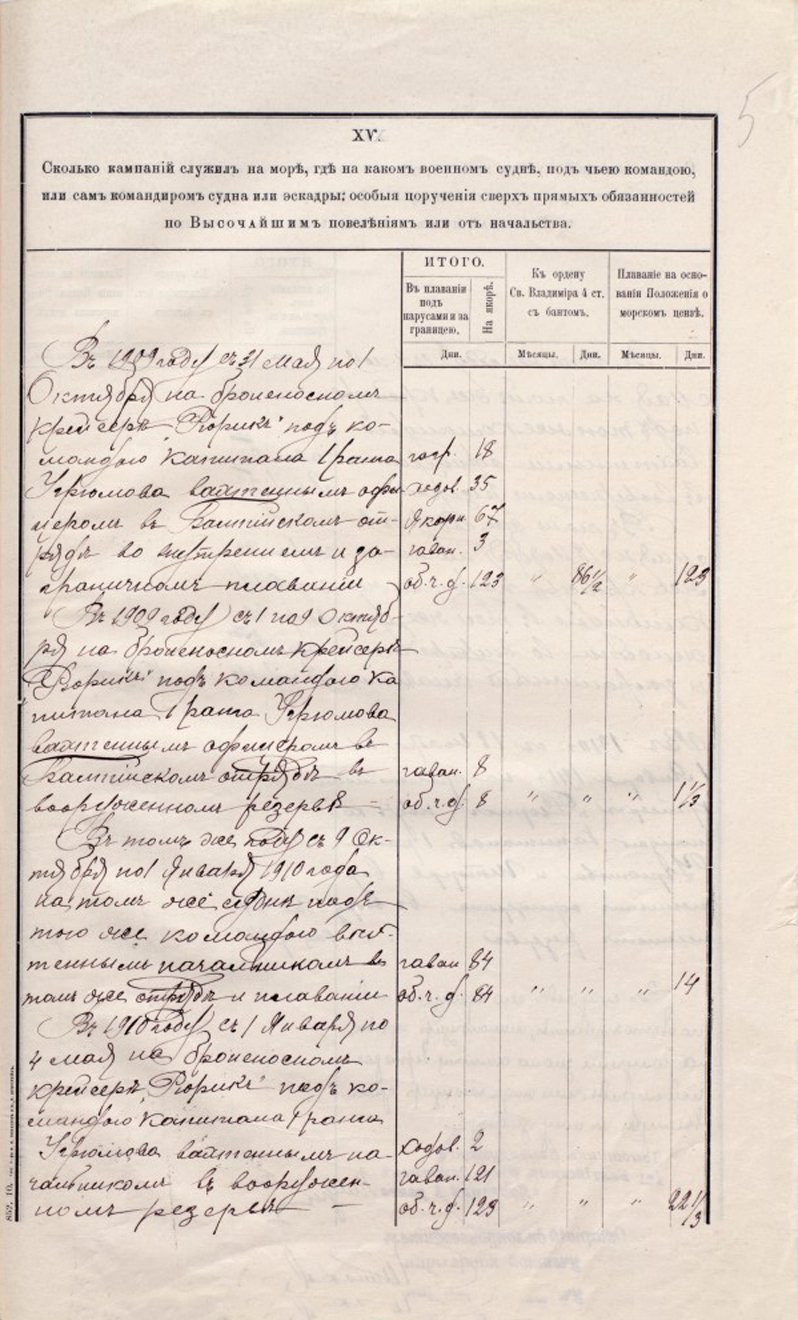 5
XV.
Сколько кампаній служилъ на морѣ, гдѣ на какомъ военномъ суднѣ, подъ чьею командою,
или самъ командиромъ судна или эскадры; особыя порученія сверхъ прямыхъ обязанностей
по Высочайшимъ повелѣніямъ или отъ начальства.
ИТОГО.
Въ плаваніи подъ парусами и за границею.
На якорѣ.
Къ ордену Св. Владиміра 4 ст. съ бантомъ.
Плаваніе на основаніи Положенія о морскомъ цензѣ.
Дни. Мѣсяцы. Дни. Мѣсяцы. Дни.
Въ 1909 году съ 31 мая по 1
Октября на броненосномъ
крейсерѣ „Рюрикъ" подъ ко-
мандою капитана 1 ранга 18
Угрюмова вахтеннымъ офи- ходов. 35
церомъ въ Балтійскомъ от- Якорн. 67
рядѣ во внутреннемъ и за- гаван. 3
граничномъ плаваніи об. ч. д. 123 " 86 1/2 " 123
Въ 1909 году съ 1 по 9 Октяб-
ря на броненосномъ крейсерѣ
„Рюрикъ" подъ командою ка
питана 1 ранга Угрюмова
вахтеннымъ офицеромъ въ
Балтійскомъ отрядѣ въ гаван. 8
вооруженномъ резервѣ – об. ч. д. 8 " " " 1 1/3
Въ томъ же году съ 9 Ок-
тября по 1 Января 1910 года
на томъ же суднѣ подъ
тою же командою вах-
теннымъ начальникомъ въ гаван 84
томъ же отрядѣ и плаваніи об. ч. д. 84 " " " 14
Въ 1910 году съ 1 Января по
4 мая на броненосномъ
крейсерѣ „Рюрикъ" подъ ко-
мандою капитана 1 ранга
Угрюмова вахтеннымъ на- ходов. 2
чальникомъ въ вооружен- гаван. 121
номъ резервѣ – об. ч. д. 123 " " " 22 1/3
852. 10.